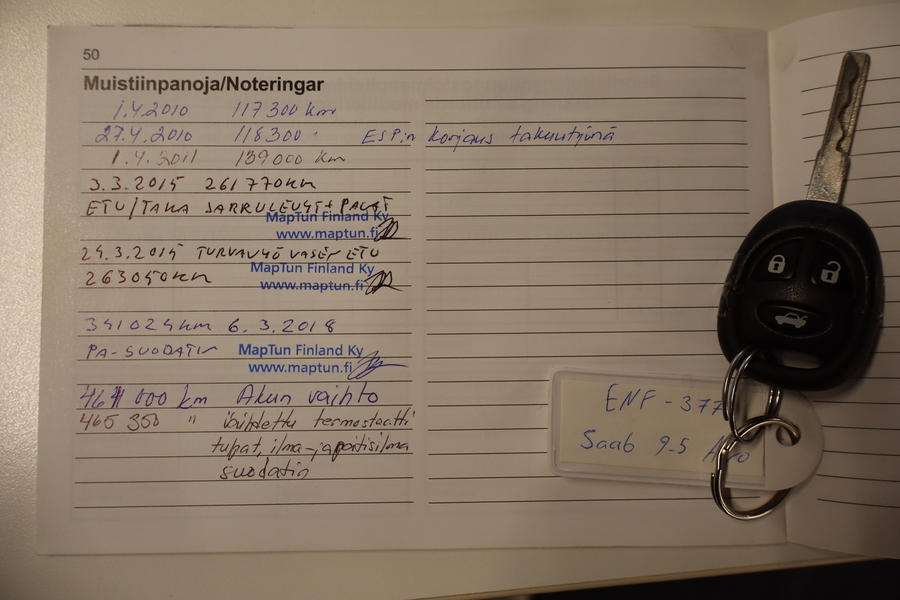 50
Muistiinpanoja/Noteringar
1.4.2010 117 300 km
27.4.2010 118 300 " ESP:n korjaus takuutyönä
1.4.2011 139 000 km
3.3.2015 261 770 km
ETU/TAKA JARRULEVYT + PALAT
MapTun Finland Ky
www.maptun.fi
24.3.2015 TURVAVYÖ VASEN ETU
263050 km MapTun Finland Ky
www.maptun.fi
341024 km 6.3.2018
PA-SUODATIN MapTun Finland Ky
www.maptun.fi
464 000 km Akun vaihto
465 350 " Vaihdettu termostaatti
tulpat, ilma- ja raitisilma
suodatin
ENF-377
Saab 9-5